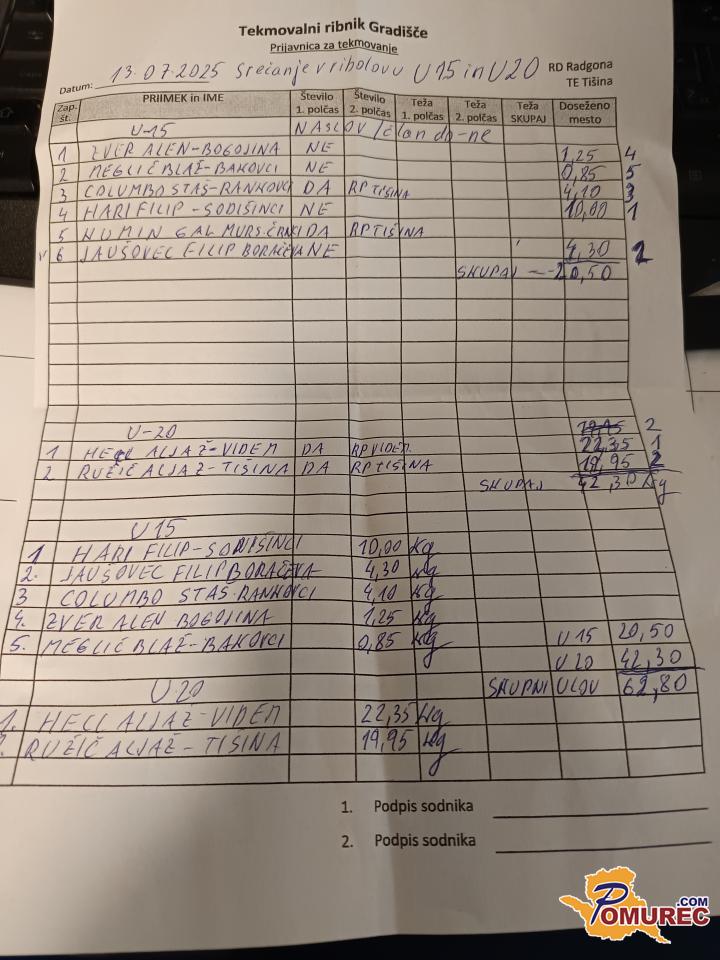 Tekmovalni ribnik Gradišče
Prijavnica za tekmovanje
Datum: 13.07.2025 Srečanje v ribolovu U15 in U20 RD Radgona
TE Tišina
Zap. št. PRIIMEK in IME Število 1. polčas Število 2. polčas Teža 1. polčas Teža 2. polčas Teža SKUPAJ Doseženo mesto
U-15 NASLOV / član da-ne
1 ZVER ALEN-BOGOJINA NE 1,25 4
2 MEGLIČ BLAŽ-BAKOVCI NE 0,85 5
3 COLUMBO STAŠ-RANKOVCI DA RP TIŠINA 4,10 3
4 HARI FILIP-SODIŠINCI NE 10,00 1
5 GAL MURS. DA RP TIŠINA
v 6 JAUŠOVEC FILIP BORAČEVA NE 4,30 2
SKUPAJ - 20,50
U-20 19,95 2
1 HECL ALJAŽ-VIDEM DA RP VIDEM 22,35 1
2 RUŽIČ ALJAŽ-TIŠINA DA RP TIŠINA 19,95 2
SKUPAJ 42,30 kg
U15
1 HARI FILIP-SODIŠINCI 10,00 kg
2. JAUŠOVEC FILIP BORAČEVA 4,30 kg
3 COLUMBO STAŠ-RANKOVCI 4,10 kg
4. ZVER ALEN BOGOJINA 1,25 kg
5. MEGLIČ BLAŽ-BAKOVCI 0,85 kg U15 20,50
U20 42,30
U20 SKUPNI ULOV 62,80
1. HECL ALJAŽ-VIDEM 22,35 kg
2. RUŽIČ ALJAŽ-TIŠINA 19,95 kg
1. Podpis sodnika
2. Podpis sodnika
POMUREC.COM